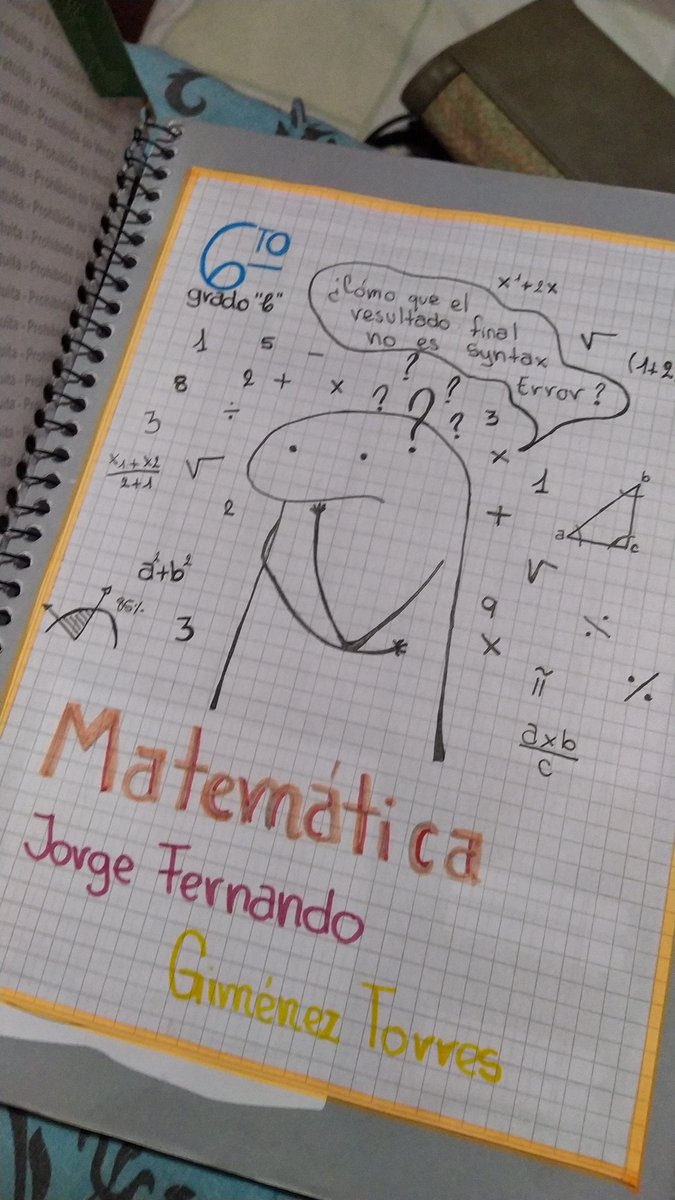 6TO
grado "6"
¿Cómo que el
resultado final
no es syntax
Error?
x¹+2x
√
(1+2
1 5 -
8 2 + x
3 ÷
? ? ? ? ?
3
x
x1+x2
2+1
√
2
1
+
b
a
c
√
a²+b²
86%
3
9
÷
x
π
%
axb
c
Matemática
Jorge Fernando
Giménez Torres